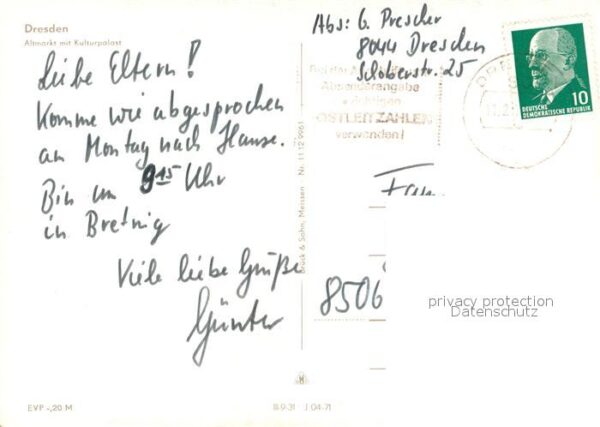 Dresden
Altmarkt mit Kulturpalast
Liebe Eltern!
Komme wie abgesprochen
am Montag nach Hause.
Bin um 9 15 Uhr
in Bretnig
Viele liebe Grüße
Günter
EVP -,20 M
Brück & Sohn, Meissen · Nr. 11 12 996
II-9-31 J 04-71
Abs: G. Prescher
8044 Dresden
25
Absenderangabe
richtigen
POSTLEITZAHLEN
verwenden!
10
DEUTSCHE
DEMOKRATISCHE REPUBLIK
8506
privacy protection
Datenschutz